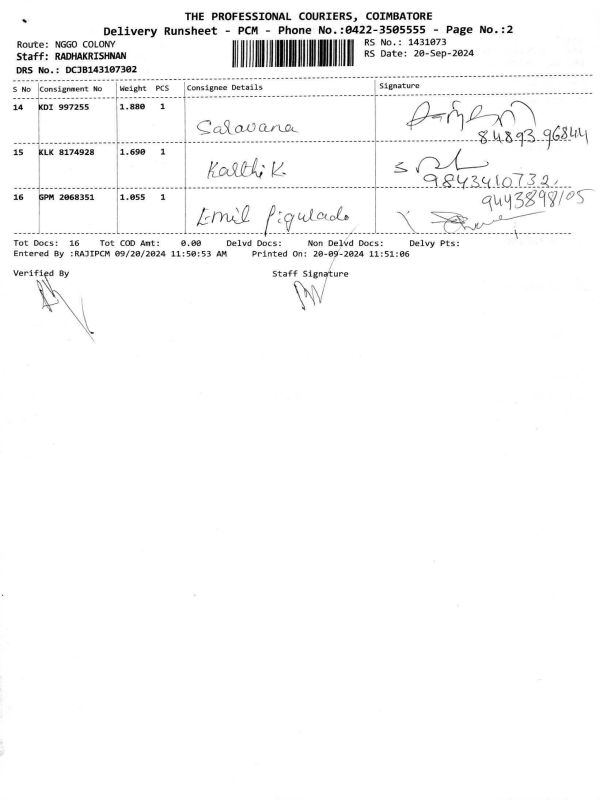 THE PROFESSIONAL COURIERS, COIMBATORE
Delivery Runsheet - PCM - Phone No.:0422-3505555 - Page No.:2
Route: NGGO COLONY RS No.: 1431073
Staff: RADHAKRISHNAN RS Date: 20-Sep-2024
DRS No.: DCJB143107302
S No Consignment No Weight PCS Consignee Details Signature
14 KDI 997255 1.880 1
Saravana 84893 96844
15 KLK 8174928 1.690 1
Karthik 9843410732
16 GPM 2068351 1.055 1 9443898105
Emil
Tot Docs: 16 Tot COD Amt: 0.00 Delvd Docs: Non Delvd Docs: Delvy Pts:
Entered By :RAJIPCM 09/20/2024 11:50:53 AM Printed On: 20-09-2024 11:51:06
Verified By Staff Signature